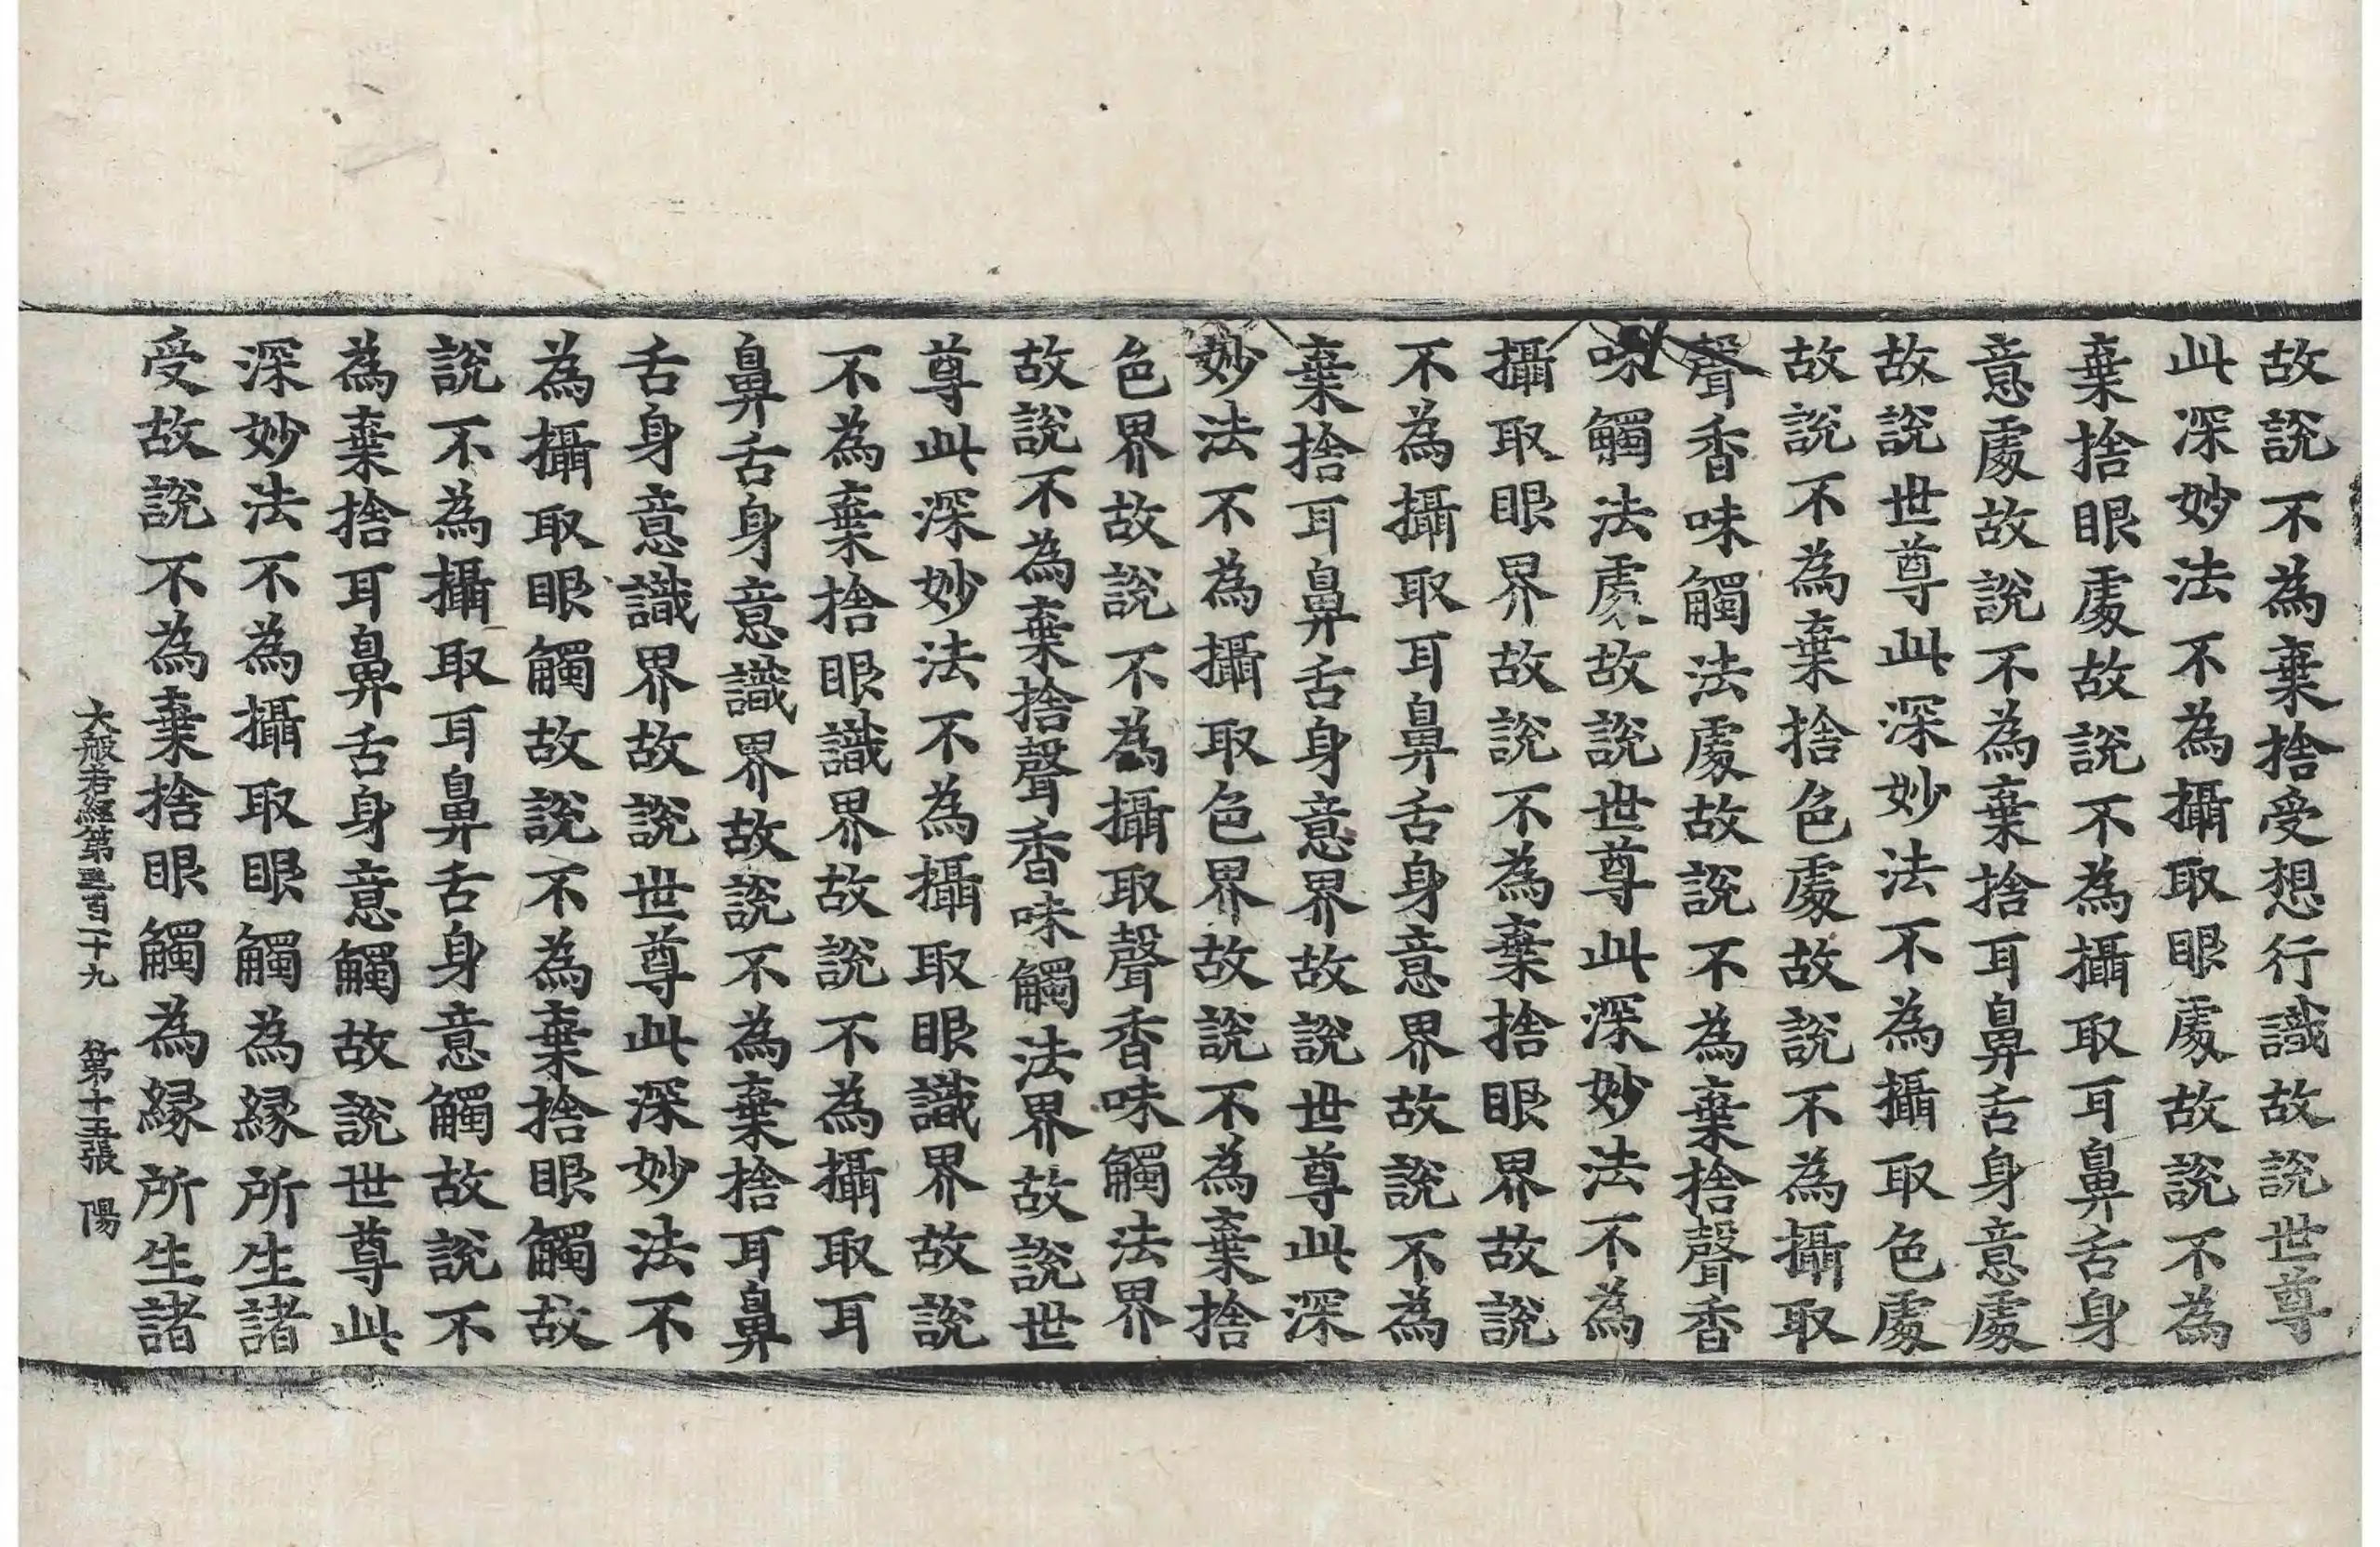 故說不為棄捨受想行識故說世尊
此深妙法不為攝取眼處故說不為
棄捨眼處故說不為攝取耳鼻舌身
意處故說不為棄捨耳鼻舌身意處
故說世尊此深妙法不為攝取色處
故說不為棄捨色處故說不為攝取
聲香味觸法處故說不為棄捨聲香
味觸法處故說世尊此深妙法不為
攝取眼界故說不為棄捨眼界故說
不為攝取耳鼻舌身意界故說不為
棄捨耳鼻舌身意界故說世尊此深
妙法不為攝取色界故說不為棄捨
色界故說不為攝取聲香味觸法界
故說不為棄捨聲香味觸法界故說世
尊此深妙法不為攝取眼識界故說
不為棄捨眼識界故說不為攝取耳
鼻舌身意識界故說不為棄捨耳鼻
舌身意識界故說世尊此深妙法不
為攝取眼觸故說不為棄捨眼觸故
說不為攝取耳鼻舌身意觸故說不
為棄捨耳鼻舌身意觸故說世尊此
深妙法不為攝取眼觸為緣所生諸
受故說不為棄捨眼觸為緣所生諸
大般若經第三百二十九 第十五張 陽